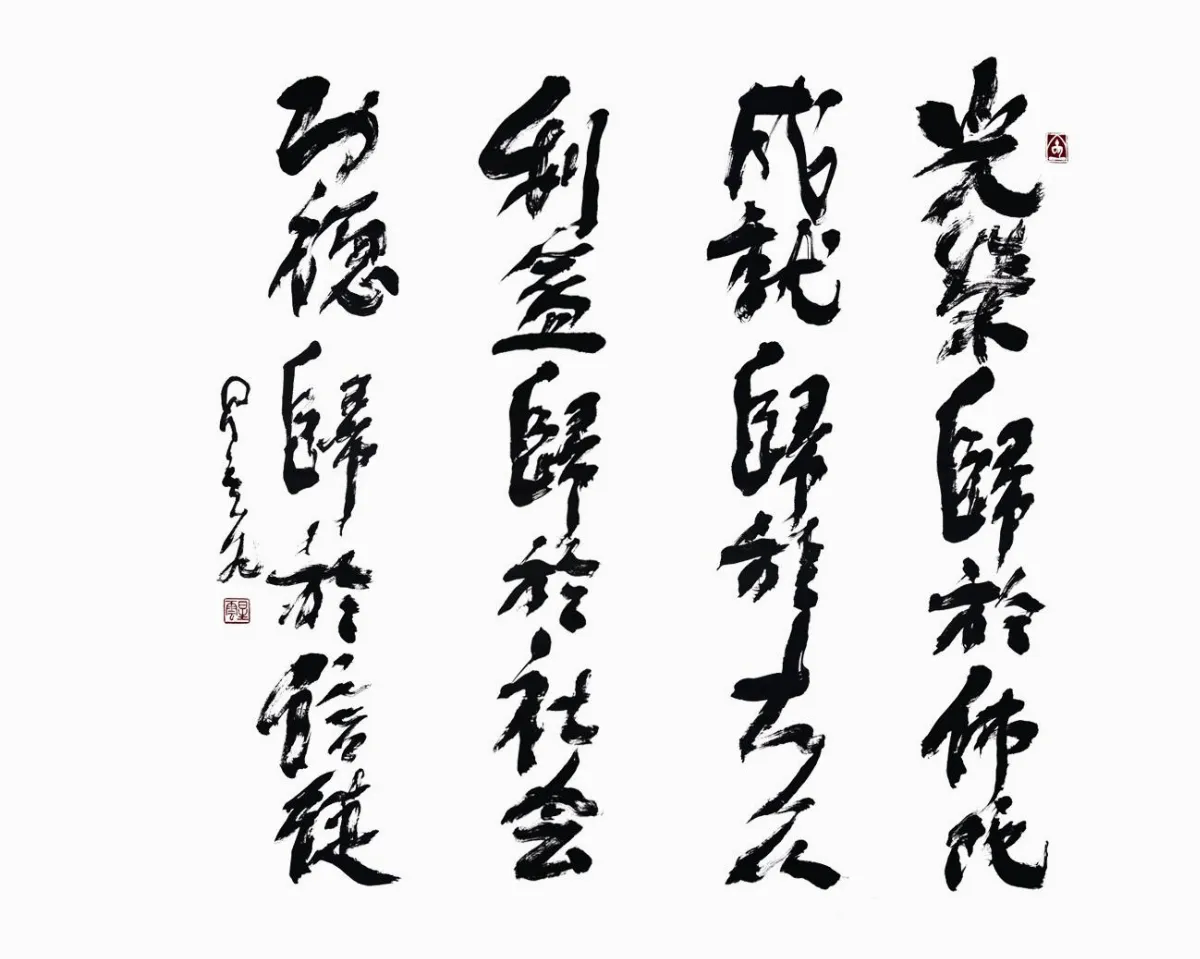 光榮歸於佛陀
成就歸於大众
利益歸於社会
功德歸於信徒
星雲